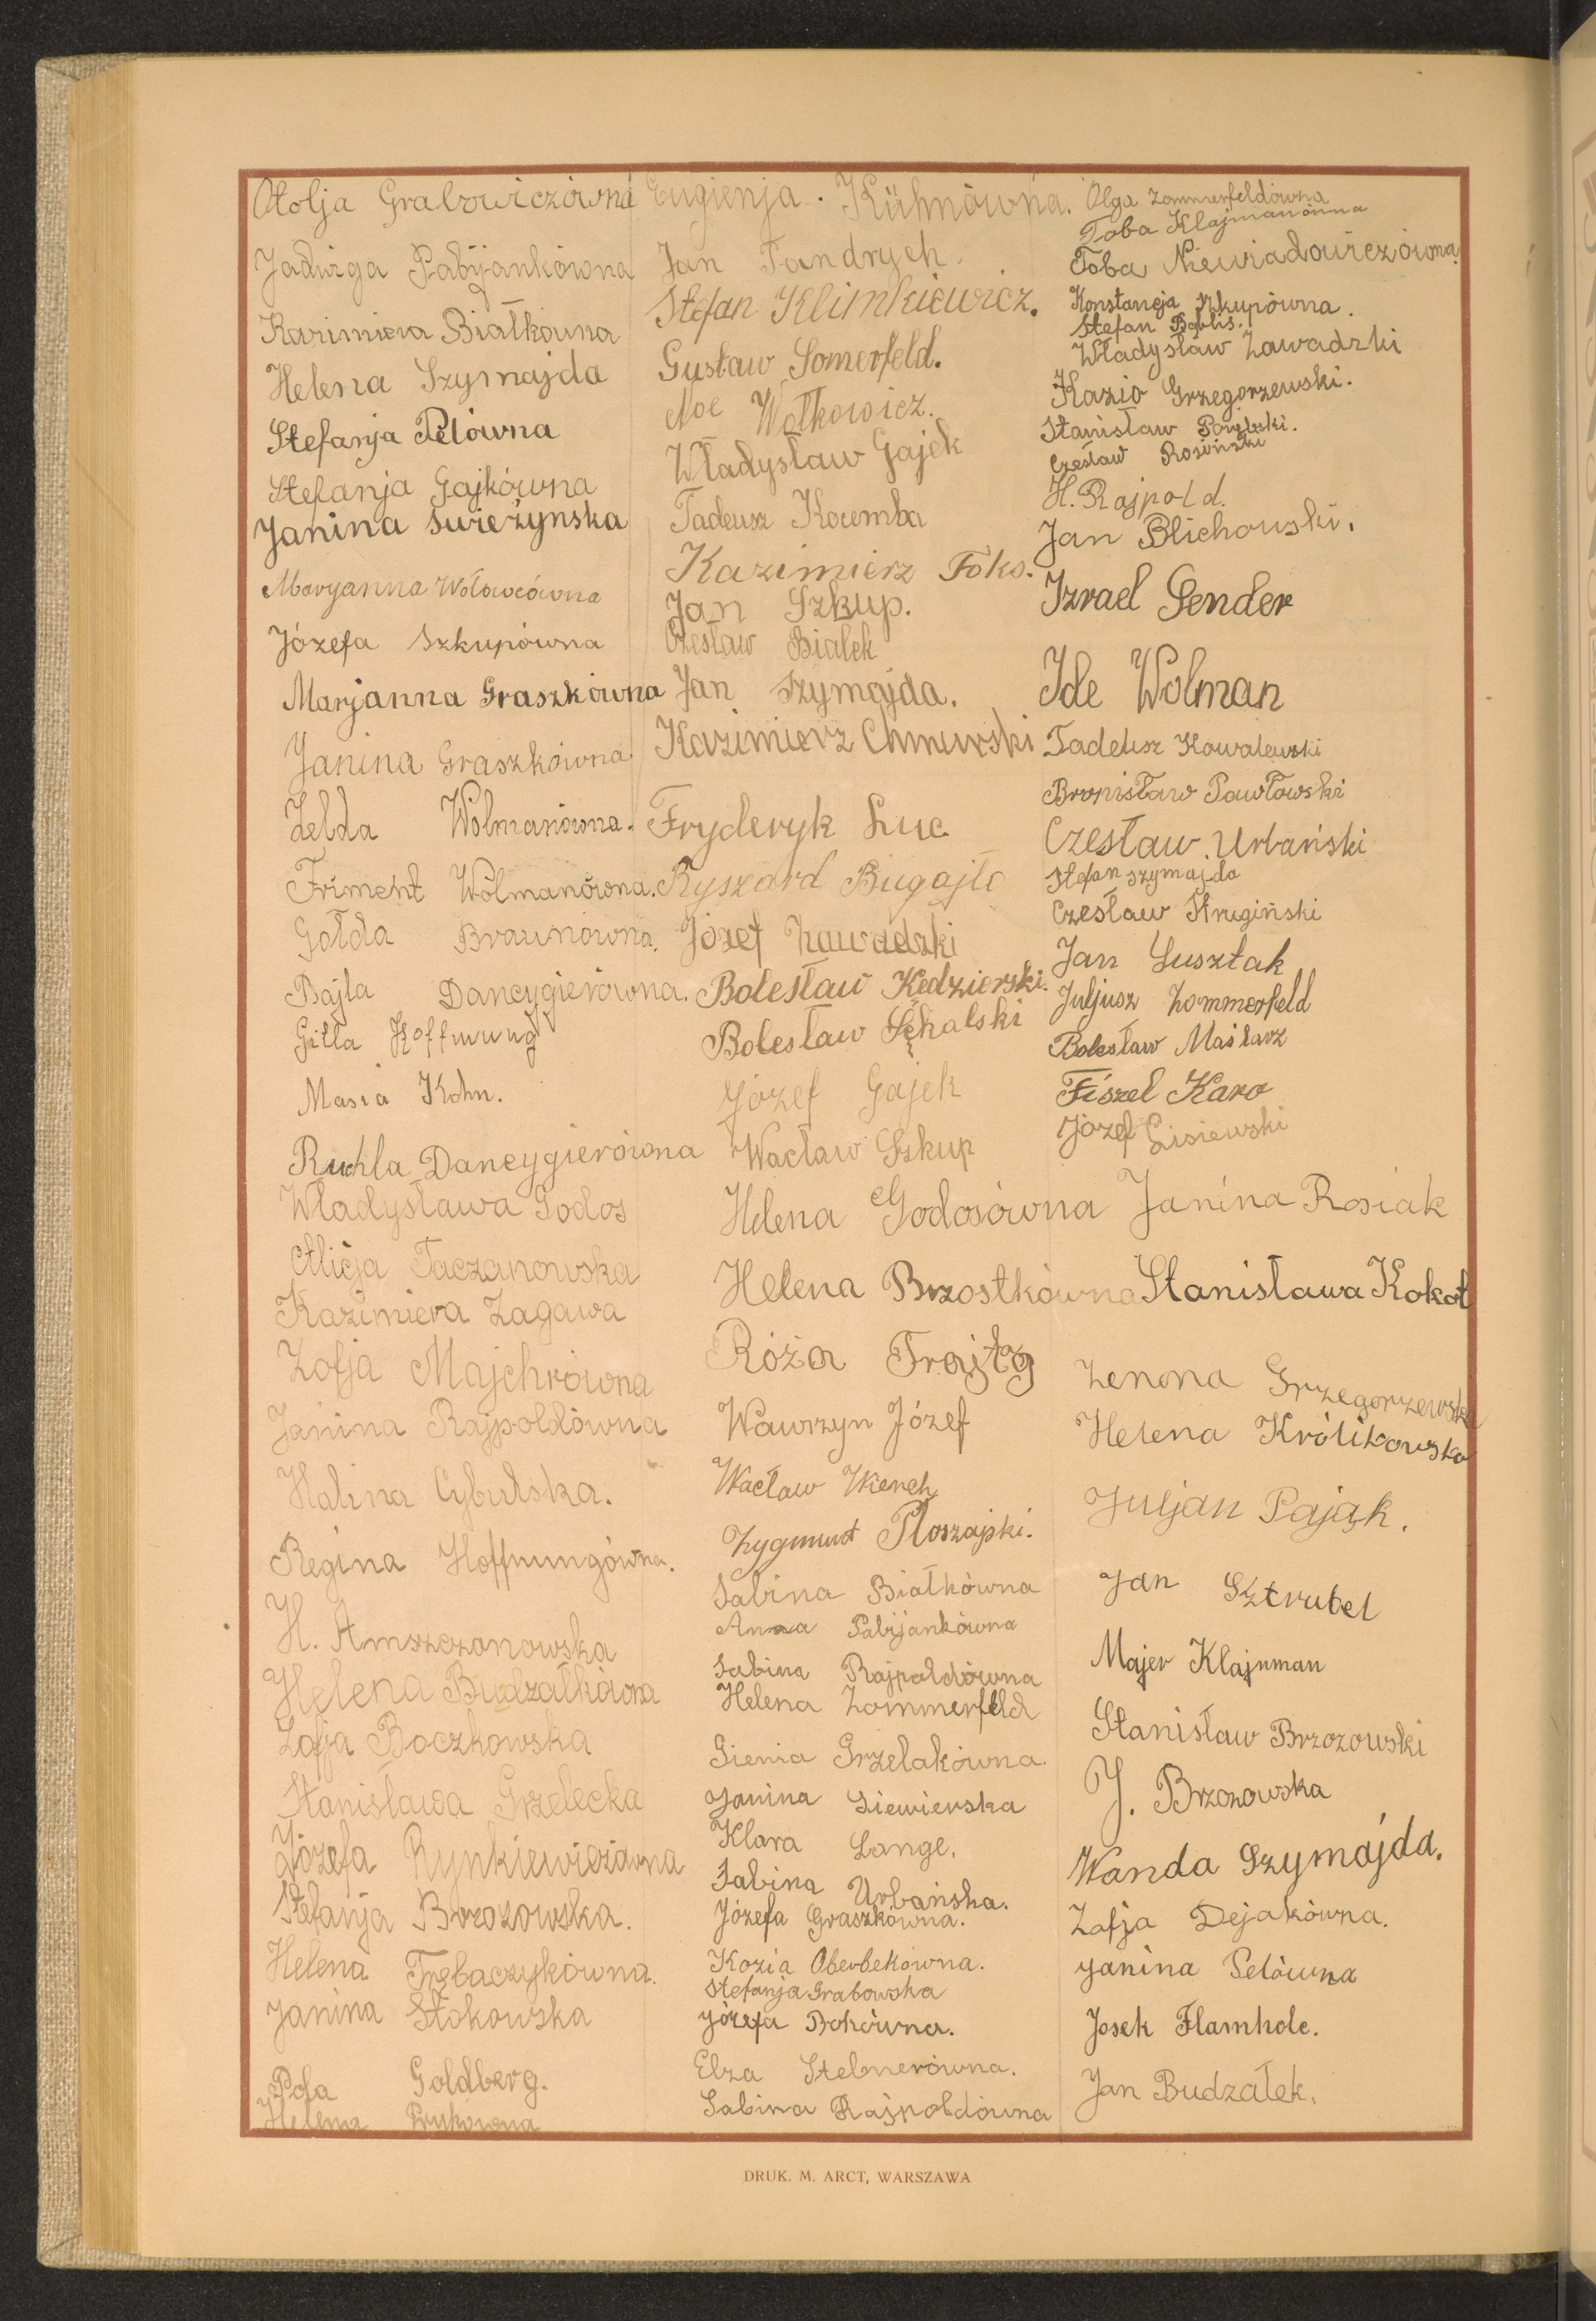 Otolja Grabowiczówna
Jadwiga Pabijankówna
Kazimiera Białkówna
Helena Szymajda
Stefanja Pelówna
Stefanja Gajkówna
Janina Świeżynska
Maryanna Wołowcówna
Józefa Szkupówna
Marjanna Graszkówna
Janina Graszkówna
Zelda Wolmanówna.
Friment Wolmanówna.
Gołda Braunówna.
Bajla Dancygierówna.
Gitla Hoffnung
Masia Kohn.
Ruchla Dancygierówna
Władysława Godos
Alicja Taczanowska
Kazimiera Zagawa
Zofja Majchrówna
Janina Rajpoldówna
Halina Cybulska.
Regina Hoffnungówna.
H. Amszczonowska
Helena Budzałkówna
Zofja Boczkowska
Stanisława Grzelecka
Józefa Rynkiewiczówna
Stefanja Brzozowska.
Helena Trębaczykówna.
Janina Stokowska
Pola Goldberg.
Helena
Eugienja Kühnówna.
Jan Fandrych.
Stefan Klimkiewicz.
Gustaw Somerfeld.
Noe Wołkowicz.
Władysław Gajek
Tadeusz Kocemba
Kazimierz Foks.
Jan Szkup.
Czesław Białek
Jan Szymajda.
Kazimierz
Fryderyk Luc
Ryszard Bugajło
Józef Zawadzki
Bolesław Kędzierski.
Bolesław Sękalski
Józef Gajek
Wacław Szkup
Helena Godosówna
Helena Brzostkówna
Róża Frajtag
Wawrzyn Józef
Wacław Wierch
Zygmunt Płoszajski.
Sabina Białkówna
Anna Pabijankówna
Sabina Rajpoldówna
Helena Zommerfeld
Gienia Grzelakówna.
Janina Siewierska
Klara Lange.
Sabina Urbańska.
Józefa Graszkówna.
Kozia Oberbekówna.
Stefanja Grabowska
Józefa Bokówna.
Elza Stelmerówna.
Sabina Rajpoldówna
Olga Zommerfeldówna
Toba Klajmanówna
Toba Niewiadowiczówna.
Konstancja Szkupówna.
Stefan Bablis.
Władysław Zawadzki
Kazio Grzegorzewski.
Stanisław
Czesław Rosiński
H. Rajpold.
Jan Blichowski.
Izrael Gender
Ide Wolman
Tadeusz Kowalewski
Bronisław Pawłowski
Czesław Urbański
Stefan Szymajda
Czesław Strugiński
Jan Susztak
Juljusz Zommerfeld
Bolesław Maślarz
Fiszel Karo
Józef Lisiewski
Janina Rosiak
Stanisława Kokot
Zenona Grzegorzewska
Helena Królikowska
Juljan Pająk.
Jan Sztrubel
Majer Klajnman
Stanisław Brzozowski
J. Brzozowska
Wanda Szymajda.
Zofja Dejakówna.
Janina Pelówna
Josek Flamholc.
Jan Budzałek.
DRUK. M. ARCT, WARSZAWA